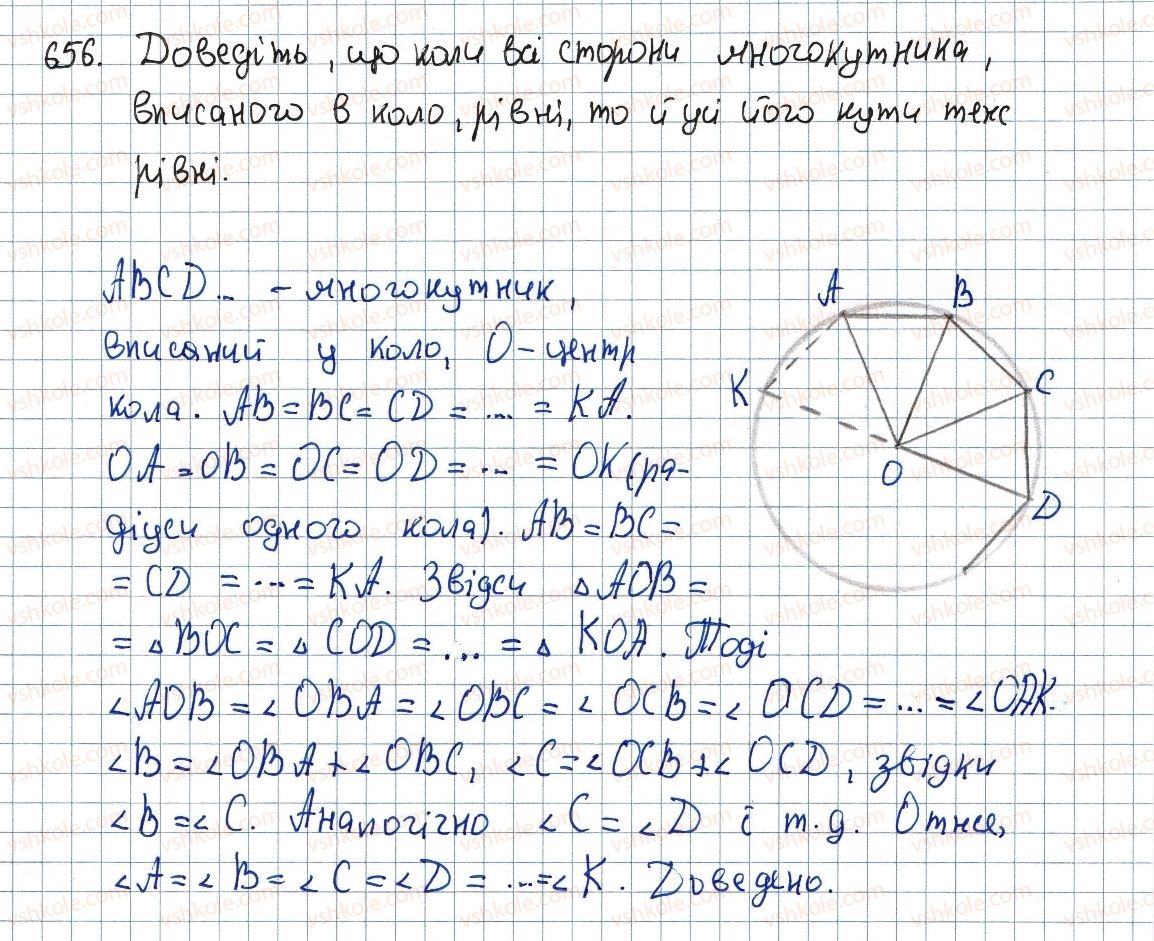 656. Доведіть, що коли всі сторони многокутника,
вписаного в коло, рівні, то й усі його кути теж
рівні.
ABCD... - многокутник,
вписаний у коло, O - центр
кола. AB = BC = CD = ... = KA.
OA = OB = OC = OD = ... = OK (ра-
діуси одного кола). AB = BC =
= CD = ... = KA. Звідси △AOB =
= △BOC = △COD = ... = △KOA. Тоді
∠AOB = ∠OBA = ∠OBC = ∠OCB = ∠OCD = ... = ∠OAK.
∠B = ∠OBA + ∠OBC, ∠C = ∠OCB + ∠OCD, звідки
∠B = ∠C. Аналогічно ∠C = ∠D і т.д. Отже,
∠A = ∠B = ∠C = ∠D = ... = ∠K. Доведено.
A
B
K
C
O
D
vshkole.com